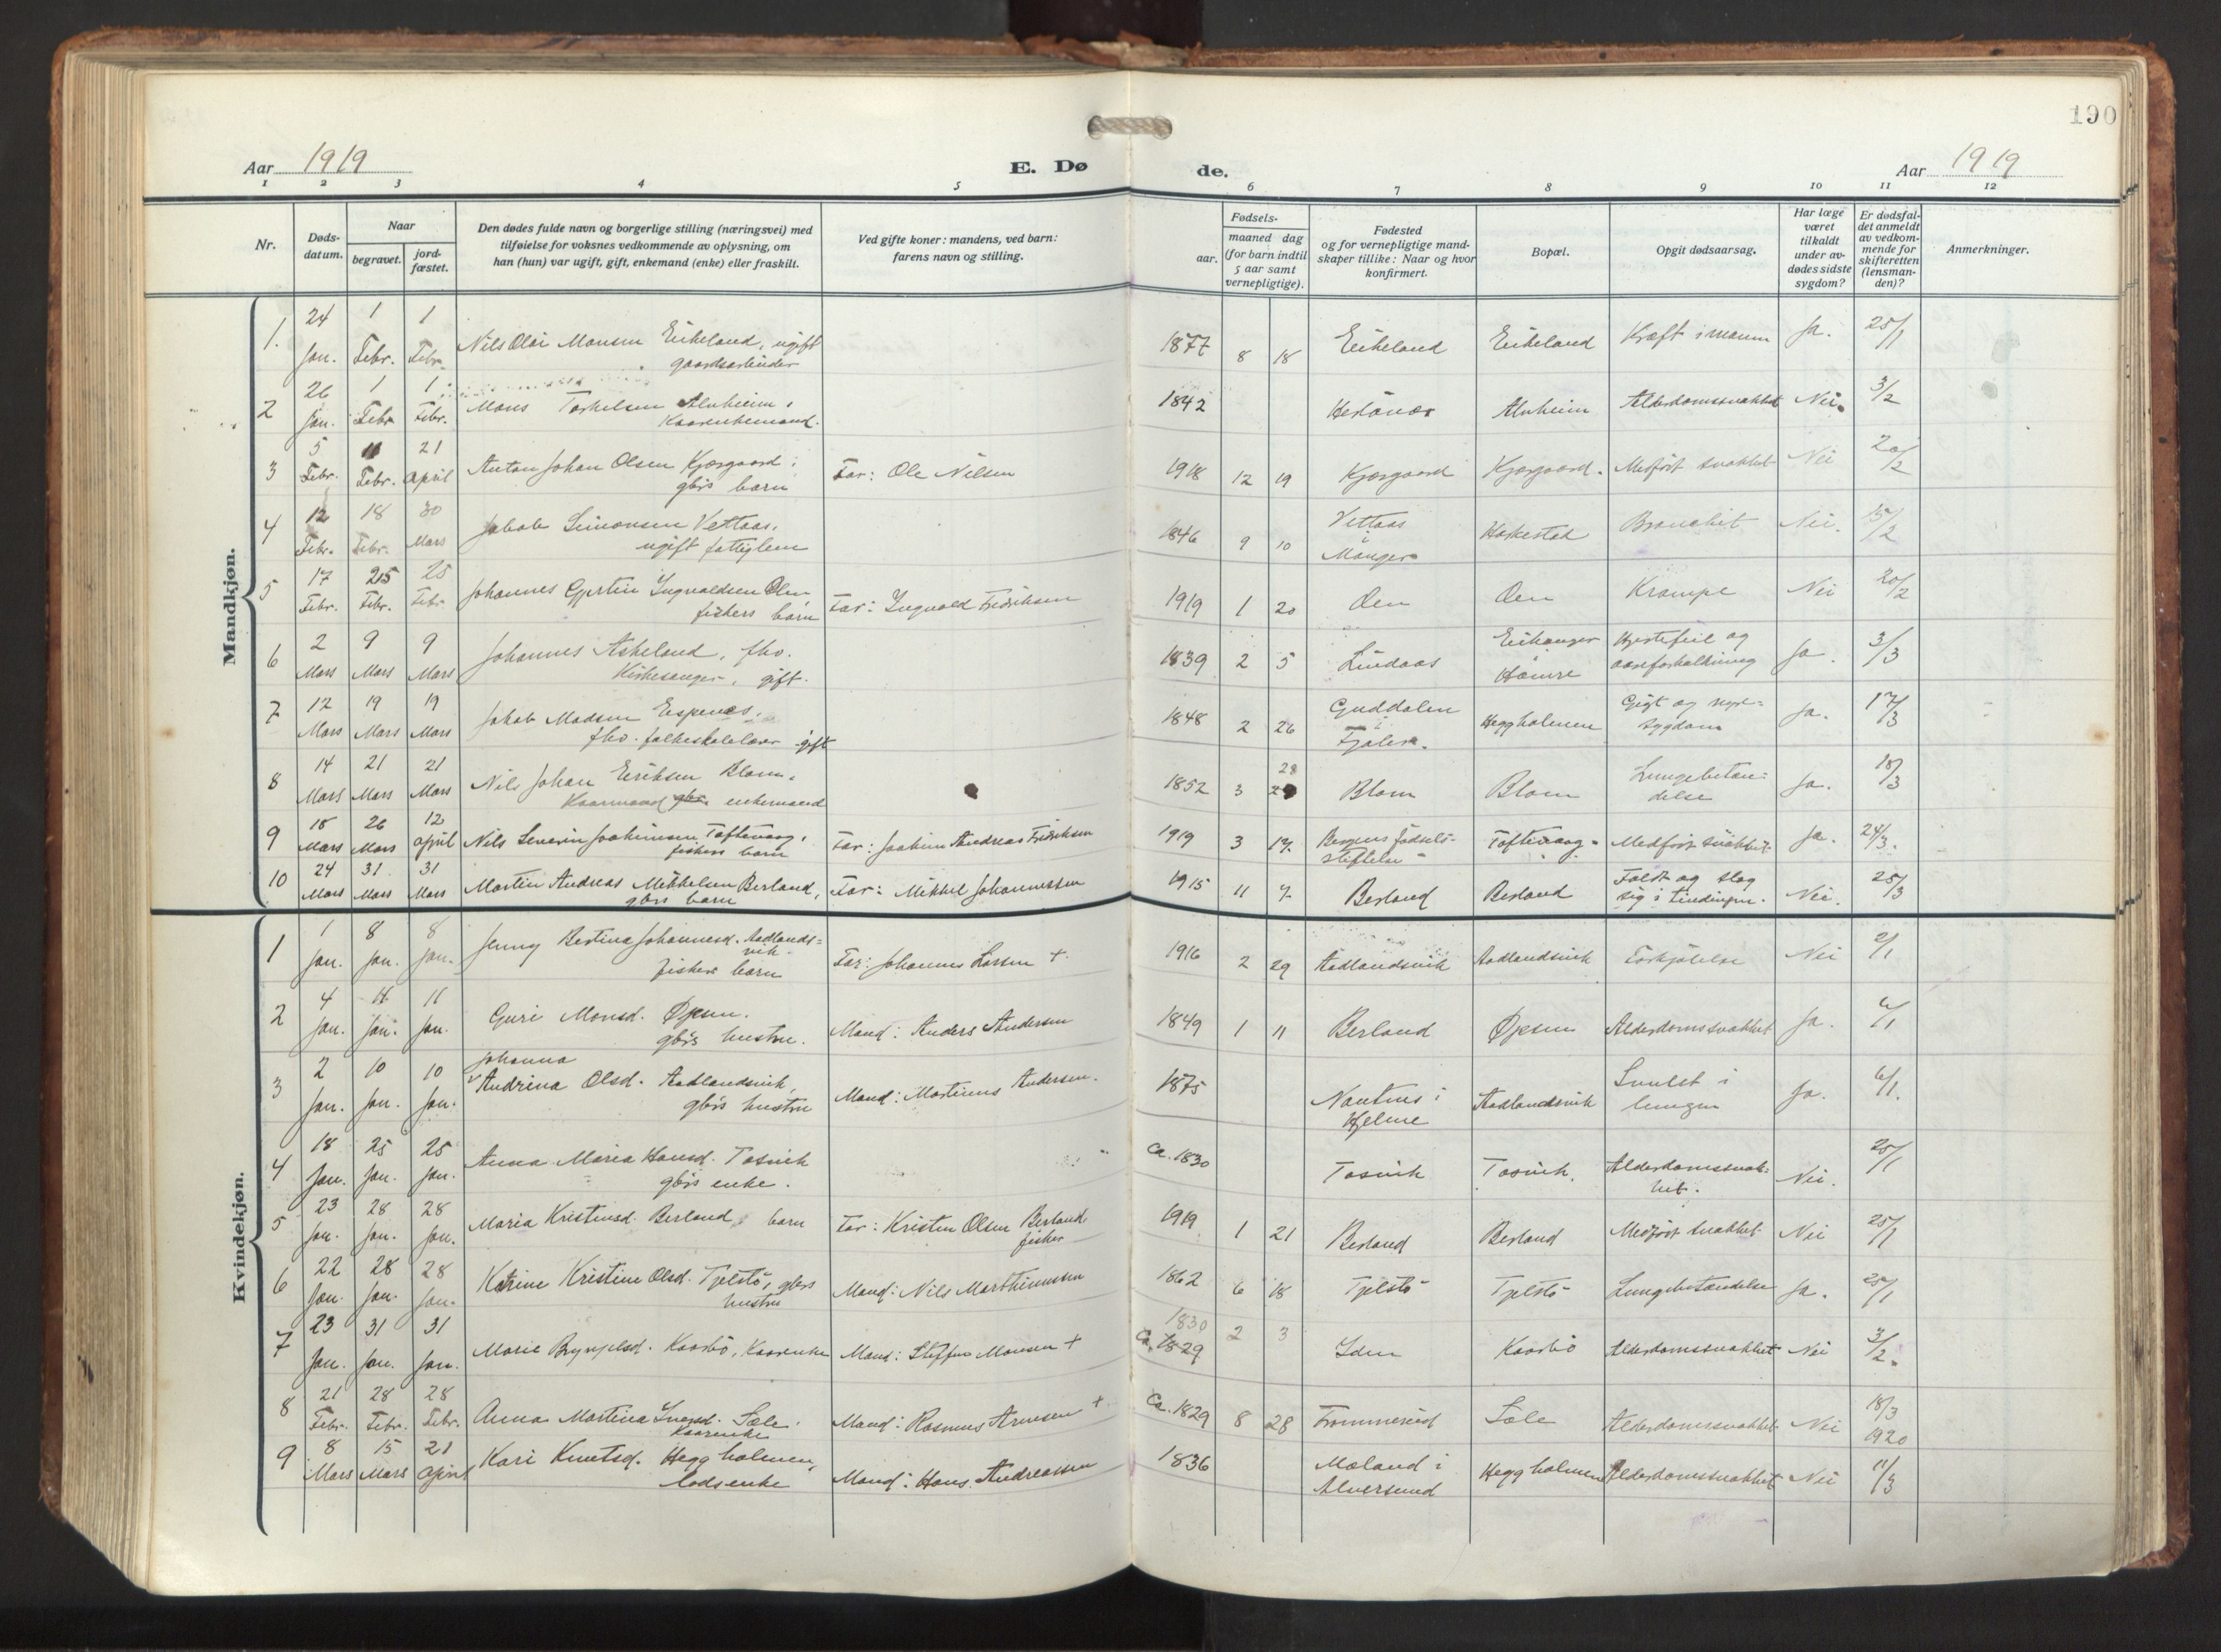 190
Aar 1919
E. Dø
de.
Aar 1919
1 2 3 4 5 6 7 8 9 10 11 12
Nr.
Døds-
datum.
Naar
begravet.
jord-
fæstet.
Den dødes fulde navn og borgerlige stilling (næringsvei) med
tilføielse for voksnes vedkommende av oplysning, om
han (hun) var ugift, gift, enkemand (enke) eller fraskilt.
Ved gifte koner: mandens, ved barn:
farens navn og stilling.
Fødsels-
aar.
maaned dag
(for barn indtil
5 aar samt
vernepligtige).
Fødested
og for vernepligtige mand-
skaper tillike: Naar og hvor
konfirmert.
Bopæl.
Opgit dødsaarsag.
Har læge
været
tilkaldt
under av-
dødes sidste
sygdom?
Er dødsfal-
det anmeldt
av vedkom-
mende for
skifteretten
(lensman-
den)?
Anmerkninger.
Mandkjøn.
1. 24 Jan. 1 Febr. 1 Febr. Nils Olai Monsen Eikeland, ugift
gaardsarbeider
1877 8 18 Eikeland Eikeland Kræft i maven Ja. 25/1
2 26 Jan. 1 Febr. 1 Febr. Mons Torkelsen Alvheim,
Kaarenkemand.
1842 Hestnes Alvheim Alderdomssvakhet Nei. 3/2
3 5 Febr. 11 Febr. 21 April Anton Johan Olsen Kjærgaard,
gbrs barn
Far: Ole Nilsen
1918 12 19 Kjærgaard Kjærgaard. Medført svakhet Nei 20/2
4 12 Febr. 18 Febr. 30 Mars Jakob Simonsen Vettaas,
ugift fattiglem
1846 9 10 Vettaas
i
Manger
Haskestad Bronchit Nei. 15/2
5 17 Febr. 25 Febr. 25 Febr. Johannes Gjertin Ingvaldsen Øen
fiskers barn
Far: Ingvald Fredriksen
1919 1 20 Øen Øen Krampe Nei 20/2
6 2 Mars 9 Mars 9 Mars Johannes Askeland, fho.
Kirkesanger, gift.
1839 2 5 Lindaas Eikanger
Hamre
Hjertefeil og
aareforkalkning
Ja. 3/3
7 12 Mars 19 Mars 19 Mars Jakob Madsen Espenes,
fho. folkeskolelærer gift
1848 2 26 Guddalen
i
Fjaler.
Heggholmen Gigt og nyre-
sygdom
Ja. 17/3
8 14 Mars 21 Mars 21 Mars Nils Johan Eriksen Blom,
Kaarmand gbr. enkemand
1852 3 28 Blom Blom Lungebetæn-
delse
Ja. 18/3
9 18 Mars 26 Mars 12 April Nils Severin Joakimsen Toftevaag,
fiskers barn
Far: Joakim Andreas Fredriksen
1919 3 17. Bergens fødsels-
stiftelse
Toftevaag Medført svakhet Ja. 24/3.
10 24 Mars 31 Mars 31 Mars Martin Andreas Mikkelsen Berland,
gbrs barn
Far: Mikkel Johannessen
1915 11 7. Berland Berland Faldt og slog
sig i tindingen.
Nei. 25/3
Kvindekjøn.
1 1 Jan. 8 Jan. 8 Jan. Jenny Bertina Johannesd. Aadlands-
vik
fiskers barn
Far: Johannes Larsen +
1916 2 29 Aadlandsvik Aadlandsvik Forkjølelse Nei 2/1
2 4 Jan. 11 Jan. 11 Jan. Guri Monsd. Øpsen.
gbrs hustru.
Mand: Anders Andersen
1849 1 11 Berland Øpsen Alderdomssvakhet Ja. 6/1
Johanna
3 2 Jan. 10 Jan. 10 Jan. Andrina Olsd. Aadlandsvik,
gbrs hustru
Mand: Martinus Andersen.
1875 Nautnes i
Hjelme
Aadlandsvik Svulst i
lungen
Ja. 6/1.
4 18 Jan. 25 Jan. 25 Jan. Anna Maria Hansd. Tosvik
gbrs enke.
Ca. 1830 Tosvik Tosvik. Alderdomssvak-
het.
Nei. 25/1
5 23 Jan. 28 Jan. 28 Jan. Maria Kristensd. Berland, barn
Far: Kristen Olsen Berland
fisker
1919 1 21 Berland Berland Medført svakhet Nei 25/1
6 22 Jan. 28 Jan. 28 Jan. Katrine Kristine Olsd. Tjelstø, gbrs
hustru
Mand: Nils Marthinussen
1862 6 18 Tjelstø Tjelstø Lungebetændelse Ja. 25/1
7 23 Jan. 31 Jan. 31 Jan. Marie Brynjelsd. Kaarbø, Kaarenke Mand: Steffen Monsen +
1830
Ca. 1829 2 3 Iden Kaarbø Alderdomssvakhet Nei 3/2.
8 21 Febr. 28 Febr. 28 Febr. Anna Martina Iversd. Sæle.
Kaarenke
Mand: Rasmus Arnesen +
Ca. 1829 8 28 Frommereid Sæle Alderdomssvakhet Nei 18/3
1920
9 8 Mars 15 Mars 21 April Kari Knutsd. Heggholmen,
lodsenke
Mand: Hans Andreassen
1836 Moland i
Alversund
Heggholmen Alderdomssvakhet Nei 11/3